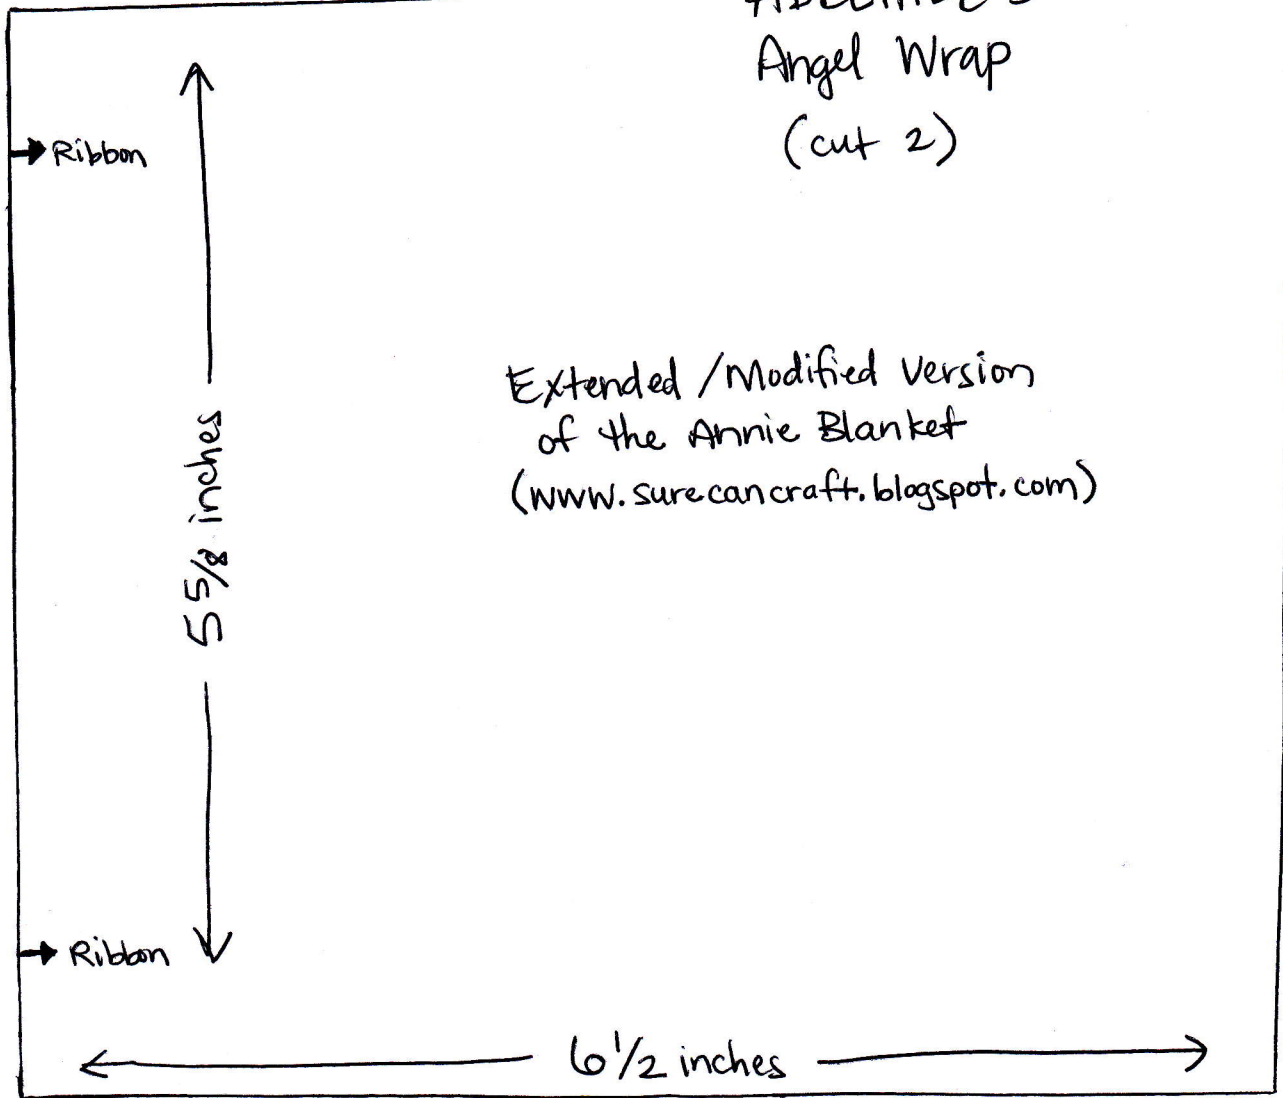 Angel Wrap
(cut 2)
Ribbon
Extended / Modified Version
of the Annie Blanket
(www.surecancraft.blogspot.com)
5 5/8 inches
Ribbon
6 1/2 inches